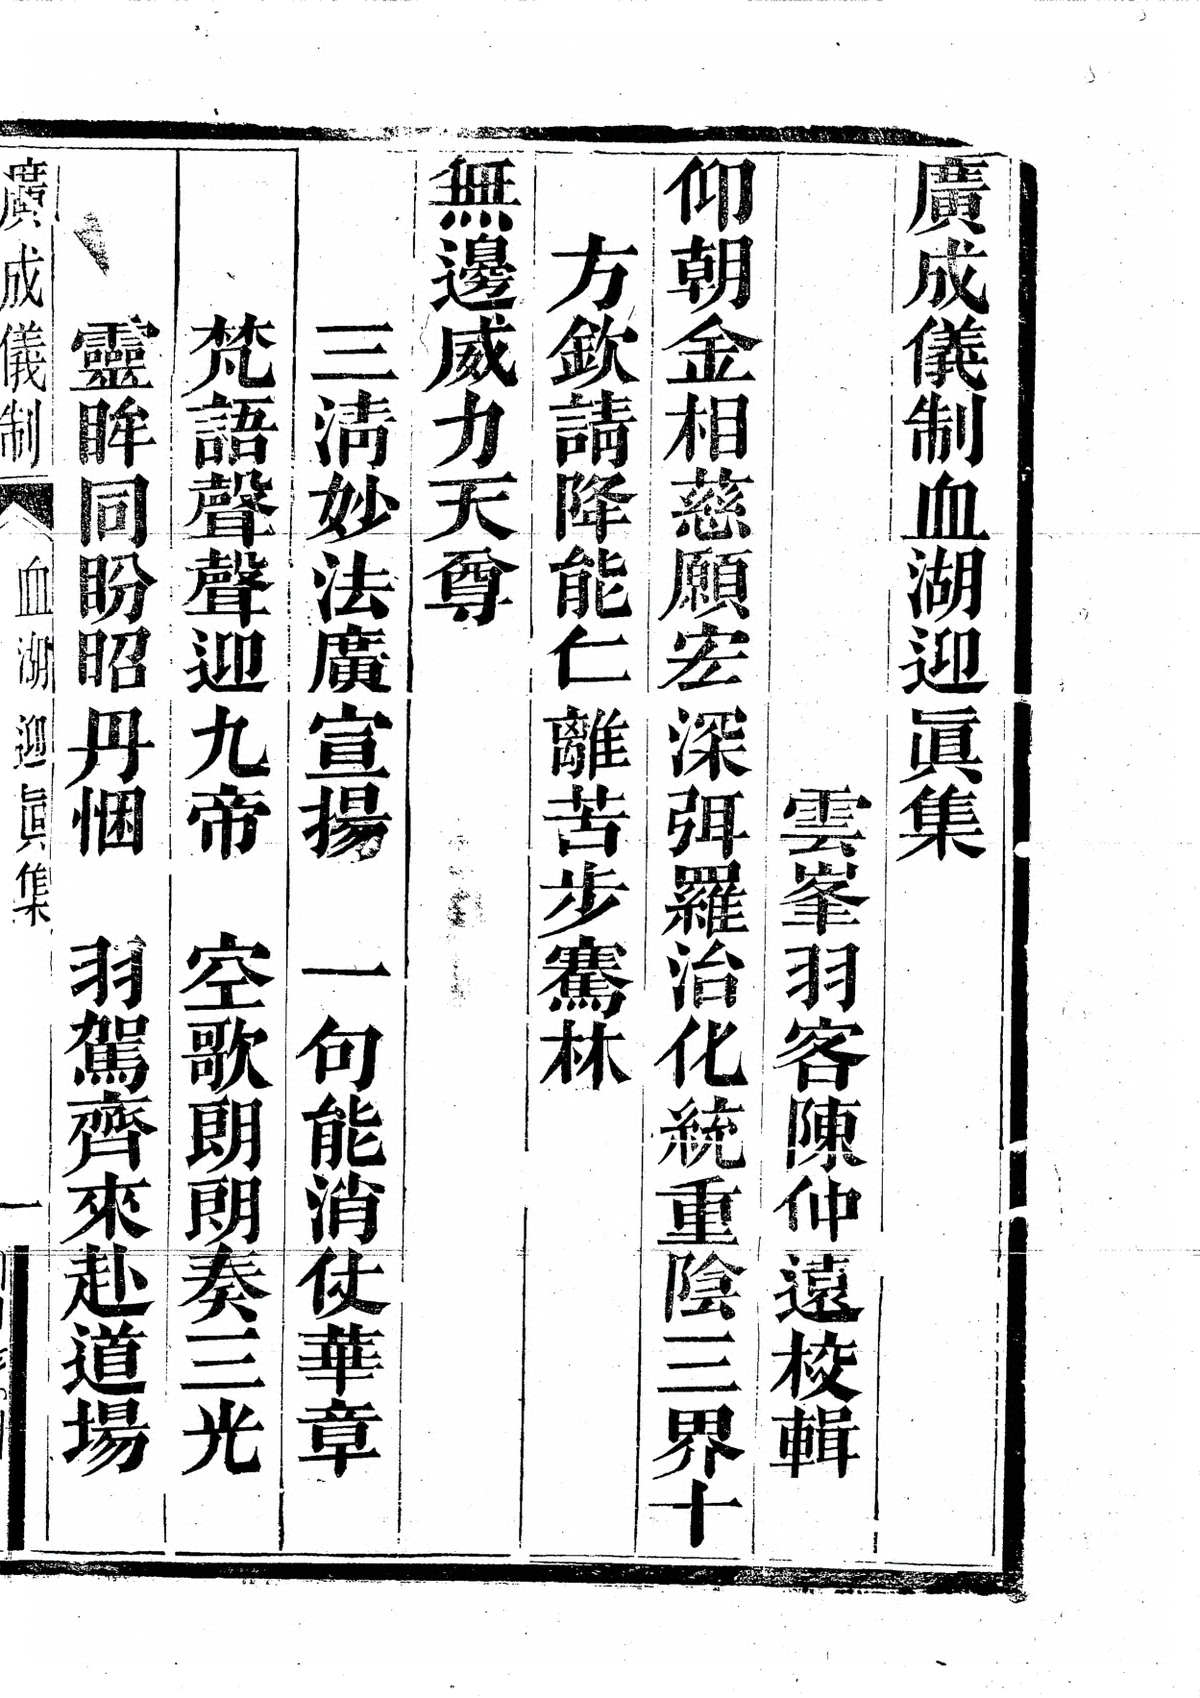 廣成儀制血湖迎眞集
雲峯羽客陳仲遠校輯
仰朝金相慈願宏深弭羅治化統重陰三界十
方欽請降能仁離苦步騫林
無邊威力天尊
三淸妙法廣宣揚　一句能消仗華章
梵語聲聲迎九帝　空歌朗朗奏三光
靈眸同盼昭丹悃　羽駕齊來赴道場
廣成儀制　血湖迎眞集　一